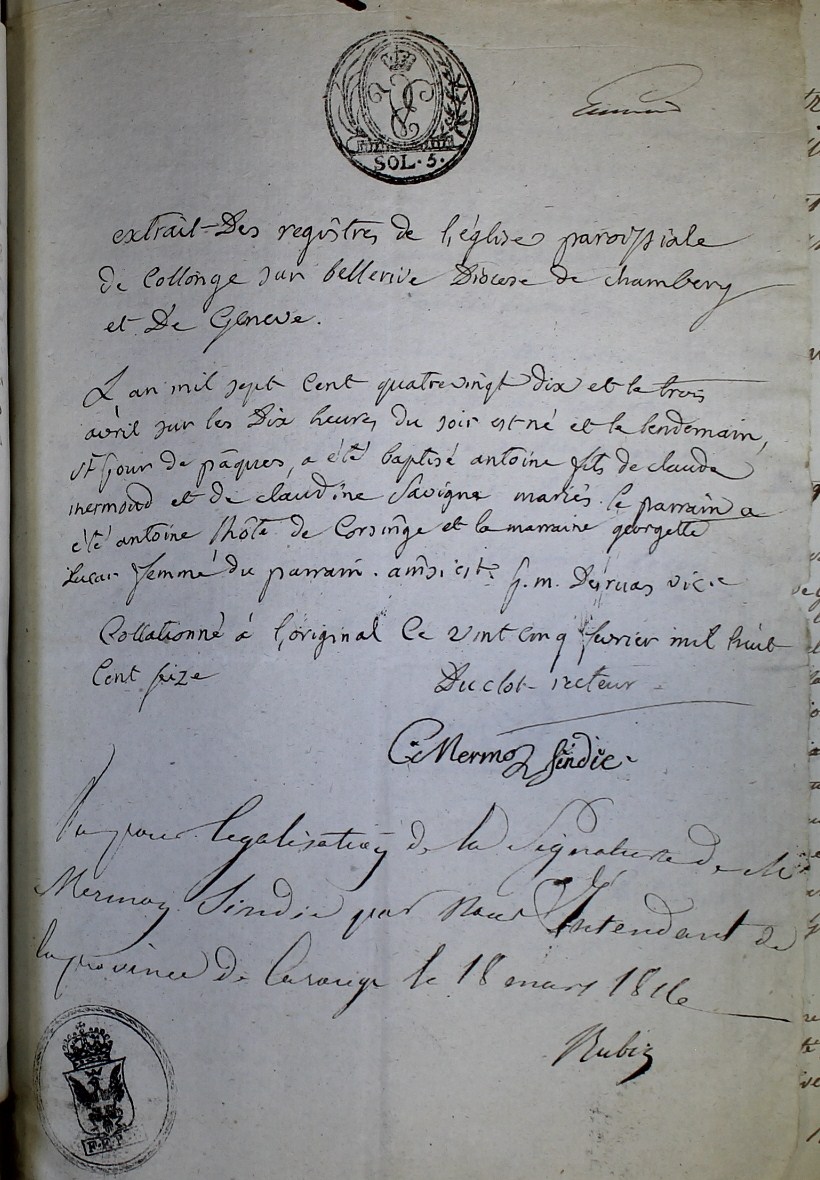 SOL · 5 ·
extrait Des registres de l'église paroissiale
de Collonge sur bellerive Diocese de chambery
et De Geneve.
L an mil sept Cent quatrevingt dix et le trois
avril sur les Dix heures du soir est né et le lendemain,
st jour de pâques, a été baptisé antoine fils de claude
mermoud et de claudine Savigne mariés. le parrain a
été antoine lhôte de Corsinge et la marraine georgette
femme du parrain. ainsi est.
Collationné à l'original Ce vint cinq fevrier mil huit
Cent seize Duclot recteur
Mermoz sindic
Vu pour legalisation de la Signature de Mr
Mermoz Sindic par Nous Intendant de
la province de Carouge le 18 mars 1816
Rubin
F.E.R.T